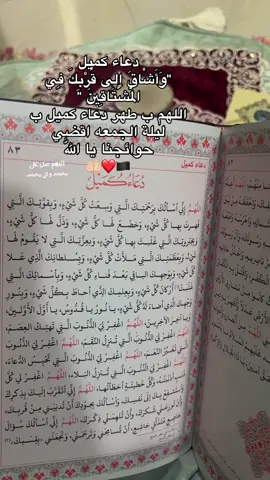 دعاء كميل
"وَأَشْتاقَ إِلى قُرْبِكَ فِي
المُشْتاقِين "
اللهم ب طهر دعاء كميل ب
ليلة الجمعه اقضي
حوائجنا يا الله
اللهم صل على
محمد وال محمد
دعاء كميل
٨٣
دُعَاءُ كُمَيْل
اَللّٰهُمَّ إِنِّي أَسْأَلُكَ بِرَحْمَتِكَ الَّتِي وَسِعَتْ كُلَّ شَيْءٍ، وَبِقُوَّتِكَ الَّتِي
قَهَرْتَ بِهَا كُلَّ شَيْءٍ، وَخَضَعَ لَهَا كُلُّ شَيْءٍ، وَذَلَّ لَهَا كُلُّ شَيْءٍ،
وَبِجَبَرُوتِكَ الَّتِي غَلَبْتَ بِهَا كُلَّ شَيْءٍ، وَبِعِزَّتِكَ الَّتِي لَا يَقُومُ لَهَا
شَيْءٌ، وَبِعَظَمَتِكَ الَّتِي مَلَأَتْ كُلَّ شَيْءٍ، وَبِسُلْطَانِكَ الَّذِي عَلَا
كُلَّ شَيْءٍ، وَبِوَجْهِكَ الْبَاقِي بَعْدَ فَنَاءِ كُلِّ شَيْءٍ، وَبِأَسْمَائِكَ الَّتِي
أَرْكَانَ كُلِّ شَيْءٍ، وَبِعِلْمِكَ الَّذِي أَحَاطَ بِكُلِّ شَيْءٍ، وَبِنُورِ
وَجْهِكَ الَّذِي أَضَاءَ لَهُ كُلُّ شَيْءٍ، يَا نُورُ يَا قُدُّوسُ، يَا أَوَّلَ الْأَوَّلِينَ،
وَيَا آخِرَ الْآخِرِينَ، اَللّٰهُمَّ اغْفِرْ لِيَ الذُّنُوبَ الَّتِي تَهْتِكُ الْعِصَمَ،
اَللّٰهُمَّ اغْفِرْ لِيَ الذُّنُوبَ الَّتِي تُنْزِلُ النِّقَمَ، اَللّٰهُمَّ اغْفِرْ لِيَ الذُّنُوبَ
الَّتِي تُغَيِّرُ النِّعَمَ، اَللّٰهُمَّ اغْفِرْ لِيَ الذُّنُوبَ الَّتِي تَحْبِسُ الدُّعَاءَ،
اَللّٰهُمَّ اغْفِرْ لِيَ الذُّنُوبَ الَّتِي تُنْزِلُ الْبَلَاءَ، اَللّٰهُمَّ اغْفِرْ لِي كُلَّ
ذَنْبٍ أَذْنَبْتُهُ، وَكُلَّ خَطِيئَةٍ أَخْطَأْتُهَا، اَللّٰهُمَّ إِنِّي أَتَقَرَّبُ إِلَيْكَ بِذِكْرِكَ
وَأَسْتَشْفِعُ بِكَ إِلَى نَفْسِكَ، وَأَسْأَلُكَ بِجُودِكَ أَنْ تُدْنِيَنِي مِنْ قُرْبِكَ،
وَأَنْ تُوزِعَنِي شُكْرَكَ، وَأَنْ تُلْهِمَنِي ذِكْرَكَ، اَللّٰهُمَّ إِنِّي أَسْأَلُكَ سُؤَالَ
خَاضِعٍ مُتَذَلِّلٍ خَاشِعٍ، أَنْ تُسَامِحَنِي وَتَرْحَمَنِي، وَتَجْعَلَنِي بِقِسْمِكَ